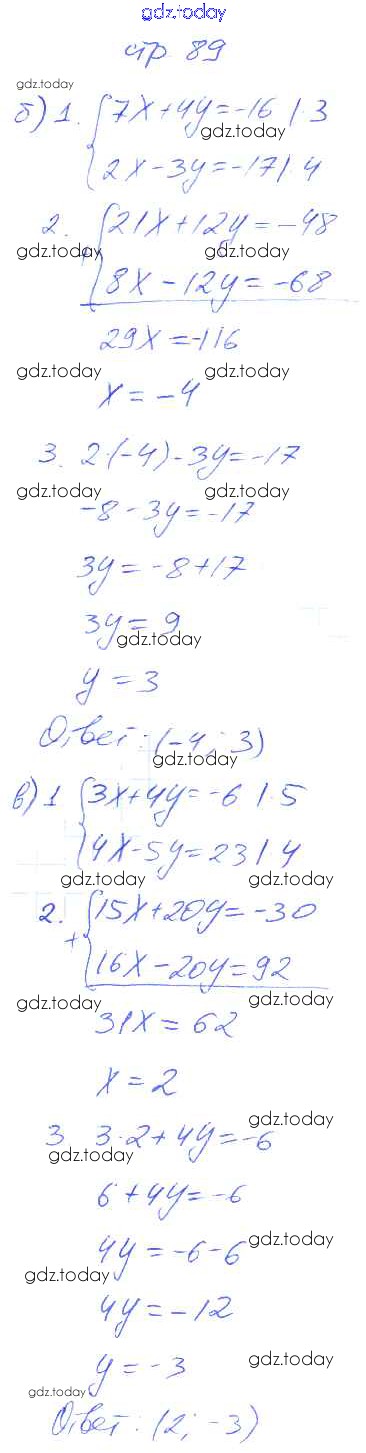 gdz.today
стр 89
gdz.today
б) 1. { 7x + 4y = -16 | · 3
gdz.today
2x - 3y = -17 | · 4
2. { 21x + 12y = -48
gdz.today gdz.today
+ 8x - 12y = -68
29x = -116
gdz.today gdz.today
x = -4
3. 2·(-4) - 3y = -17
gdz.today gdz.today
-8 - 3y = -17
3y = -8 + 17
3y = 9
gdz.today
y = 3
Ответ: (-4; 3)
gdz.today
в) 1 { 3x + 4y = -6 | · 5
4x - 5y = 23 | · 4
gdz.today gdz.today
2. { 15x + 20y = -30
+ 16x - 20y = 92
gdz.today gdz.today
31x = 62
x = 2
gdz.today
3. 3·2 + 4y = -6
gdz.today
6 + 4y = -6
4y = -6 - 6
gdz.today
gdz.today
4y = -12
y = -3
gdz.today
gdz.today
Ответ: (2; -3)